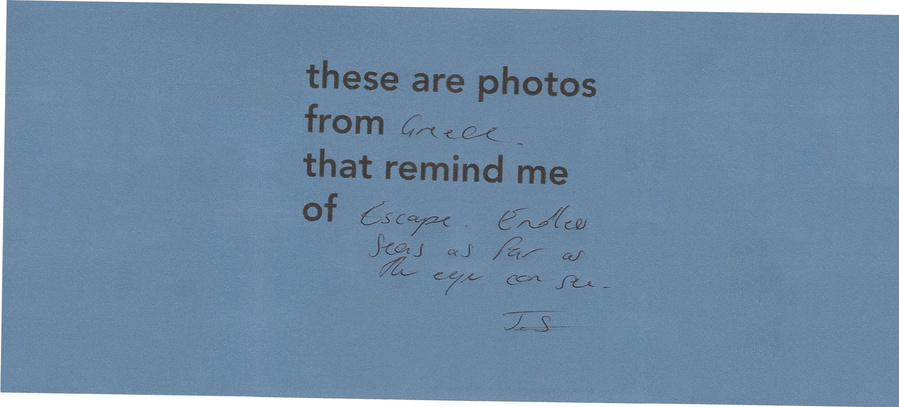 these are photos
from Greece.
that remind me
of Escape. Endless
Seas as far as
the eye can see.